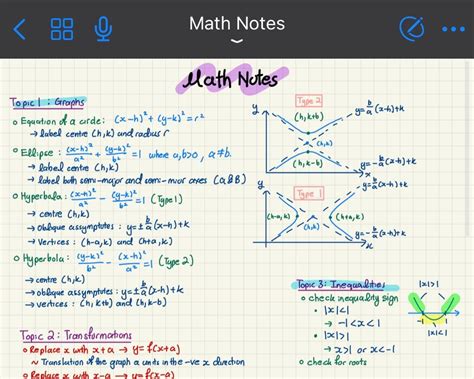 Math Notes
Math Notes
Topic 1 : Graphs
o Equation of a circle: (x-h)² + (y-k)² = r²
→ label centre (h,k) and radius r
o Ellipse : (x-h)²/a² + (y-k)²/b² = 1 where a,b>0, a≠b.
→ label centre (h,k)
→ label both semi-major and semi-minor axes (a&b)
o Hyperbola: (x-h)²/a² - (y-k)²/b² = 1 (Type 1)
→ centre (h,k)
→ oblique assymptotes : y=±b/a(x-h)+k
→ vertices : (h-a,k) and (h+a,k)
o Hyperbola : (y-k)²/b² - (x-h)²/a² = 1 (Type 2)
→ centre (h,k)
→ oblique assymptotes : y=±b/a(x-h)+k
→ vertices : (h,k+b) and (h,k-b)
Topic 2 : Transformations
o Replace x with x+a → y=f(x+a)
~ Translation of the graph a units in the -ve x direction
o Replace x with x-a → y=f(x-a)
Type 2
y
(h,k+b)
y=b/a(x-h)+k
(h,k)
(h,k-b)
y=-b/a(x-h)+k
x
Type 1
y
y=b/a(x-h)+k
(h-a,k)
(h+a,k)
(h,k)
y=-b/a(x-h)+k
x
Topic 3 : Inequalities
o check inequality sign
• |x|<1
→ -1<x<1
• |x|>1
→ x>1 or x<-1
o check for roots
|x|>1
-1
1
|x|<1